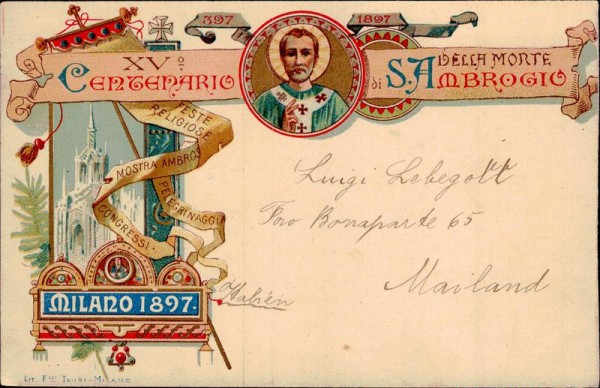 397 1897
XVº
CENTENARIO
DELLA MORTE
di S. AMBROGIO
FESTE
RELIGIOSE
MOSTRA AMBROS
PELEGRINAGGI
CONGRESSI
MILANO 1897.
Luigi Lebegott
Foro Bonaparte 65
Mailand
Italien
LIT. F.LLI TENSI-MILANO